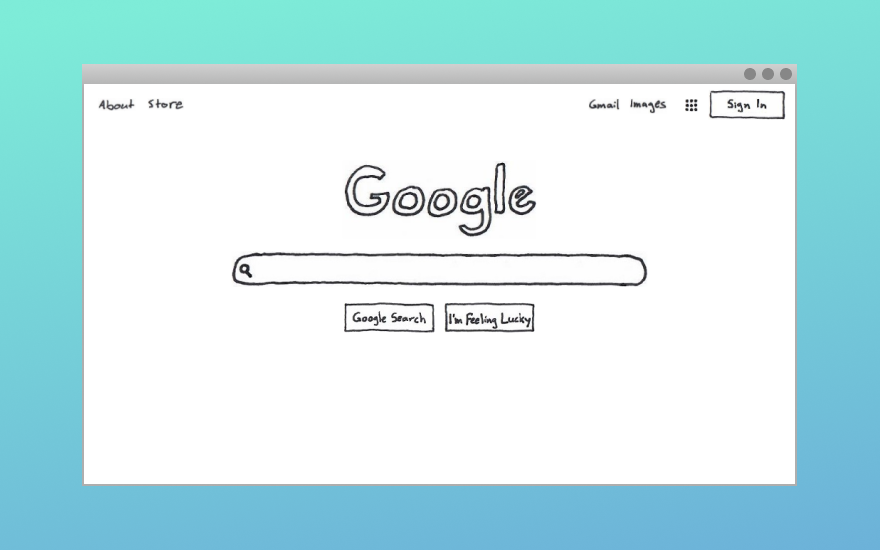 About Store Gmail Images Sign In
Google
Google Search I'm Feeling Lucky